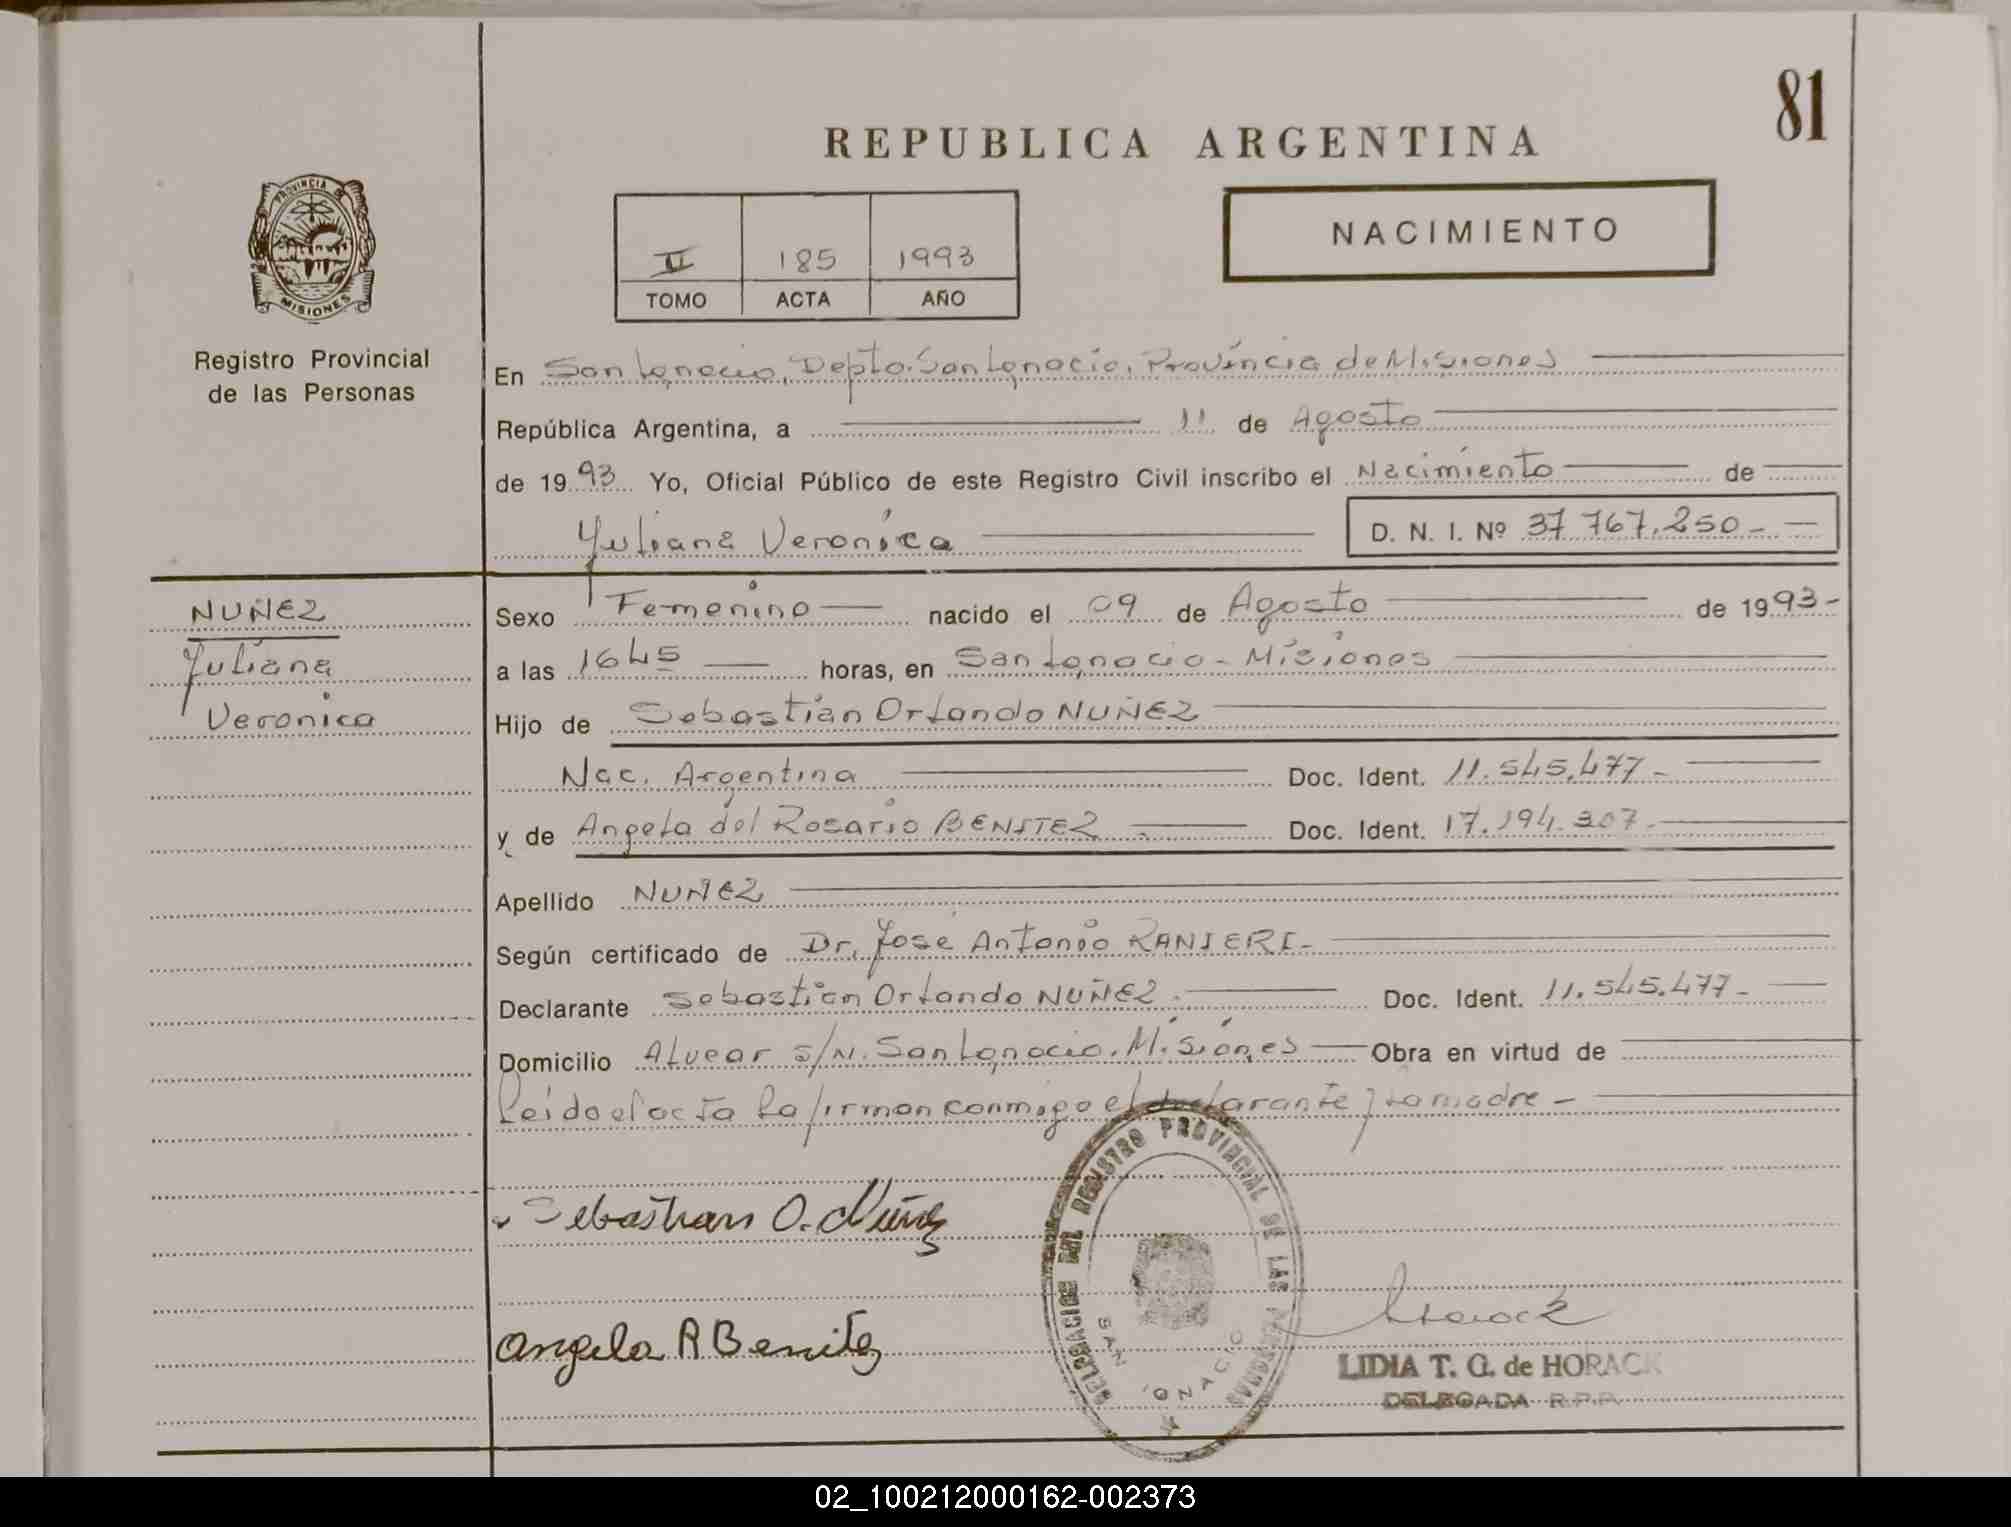 81
REPUBLICA ARGENTINA
NACIMIENTO
II 185 1993
TOMO ACTA AÑO
PROVINCIA DE
MISIONES
Registro Provincial
de las Personas
En San Ignacio, Depto. San Ignacio, Provincia de Misiones
República Argentina, a 11 de Agosto
de 1993 Yo, Oficial Público de este Registro Civil inscribo el Nacimiento de
Yuliana Verónica D. N. I. Nº 37 767.250-
NUÑEZ
Yuliana
Veronica
Sexo Femenino nacido el 09 de Agosto de 1993-
a las 1645 horas, en San Ignacio - Misiones
Hijo de Sebastian Orlando NUÑEZ
Nac. Argentina Doc. Ident. 11.545.477-
y de Angela del Rosario BENITEZ Doc. Ident. 17.194.307-
Apellido NUÑEZ
Según certificado de Dr. José Antonio RANIERI-
Declarante Sebastian Orlando NUÑEZ. Doc. Ident. 11.545.477-
Domicilio Alvear s/N. San Ignacio. Misiones Obra en virtud de
Leido el acta la firman conmigo el declarante y la madre-
Sebastian O. Nuñez
Angela R Benitez
DELEGACION DEL REGISTRO PROVINCIAL DE LAS PERSONAS
SAN IGNACIO
Horack
LIDIA T. G. de HORACK
DELEGADA R.P.P.
02_100212000162-002373